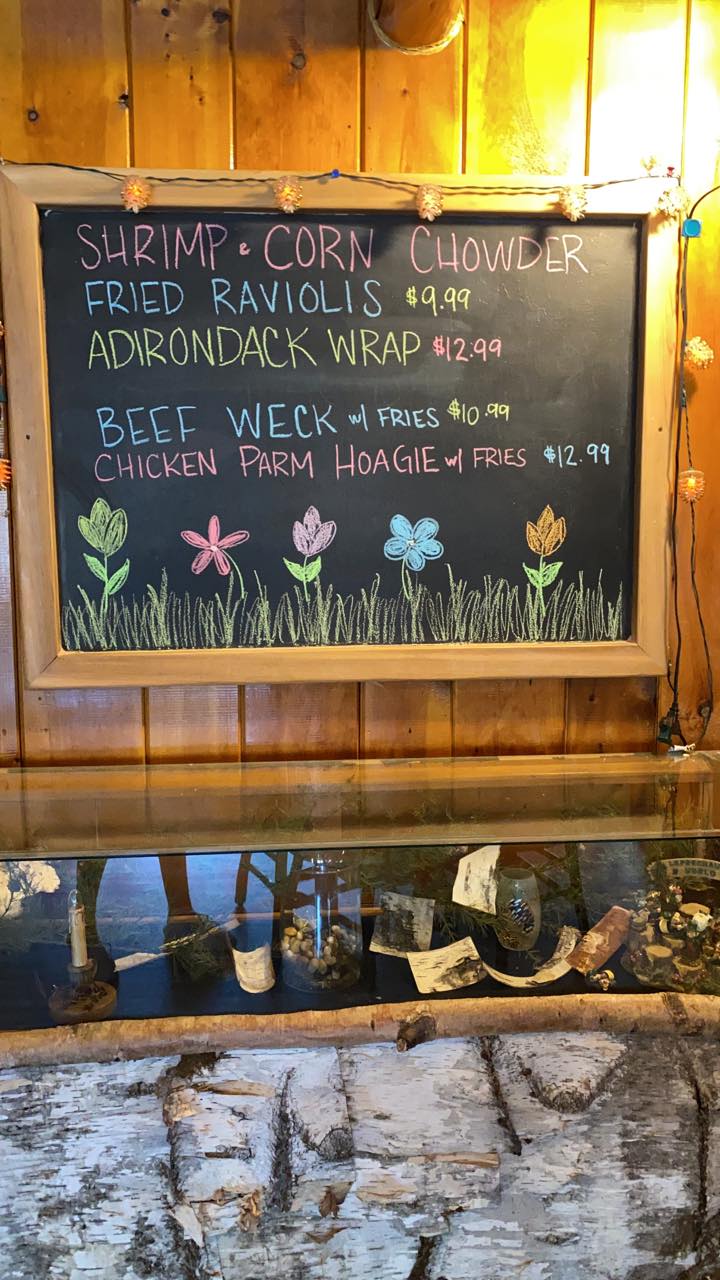 SHRIMP & CORN CHOWDER
FRIED RAVIOLIS $9.99
ADIRONDACK WRAP $12.99
BEEF WECK w/ FRIES $10.99
CHICKEN PARM HOAGIE w/ FRIES $12.99